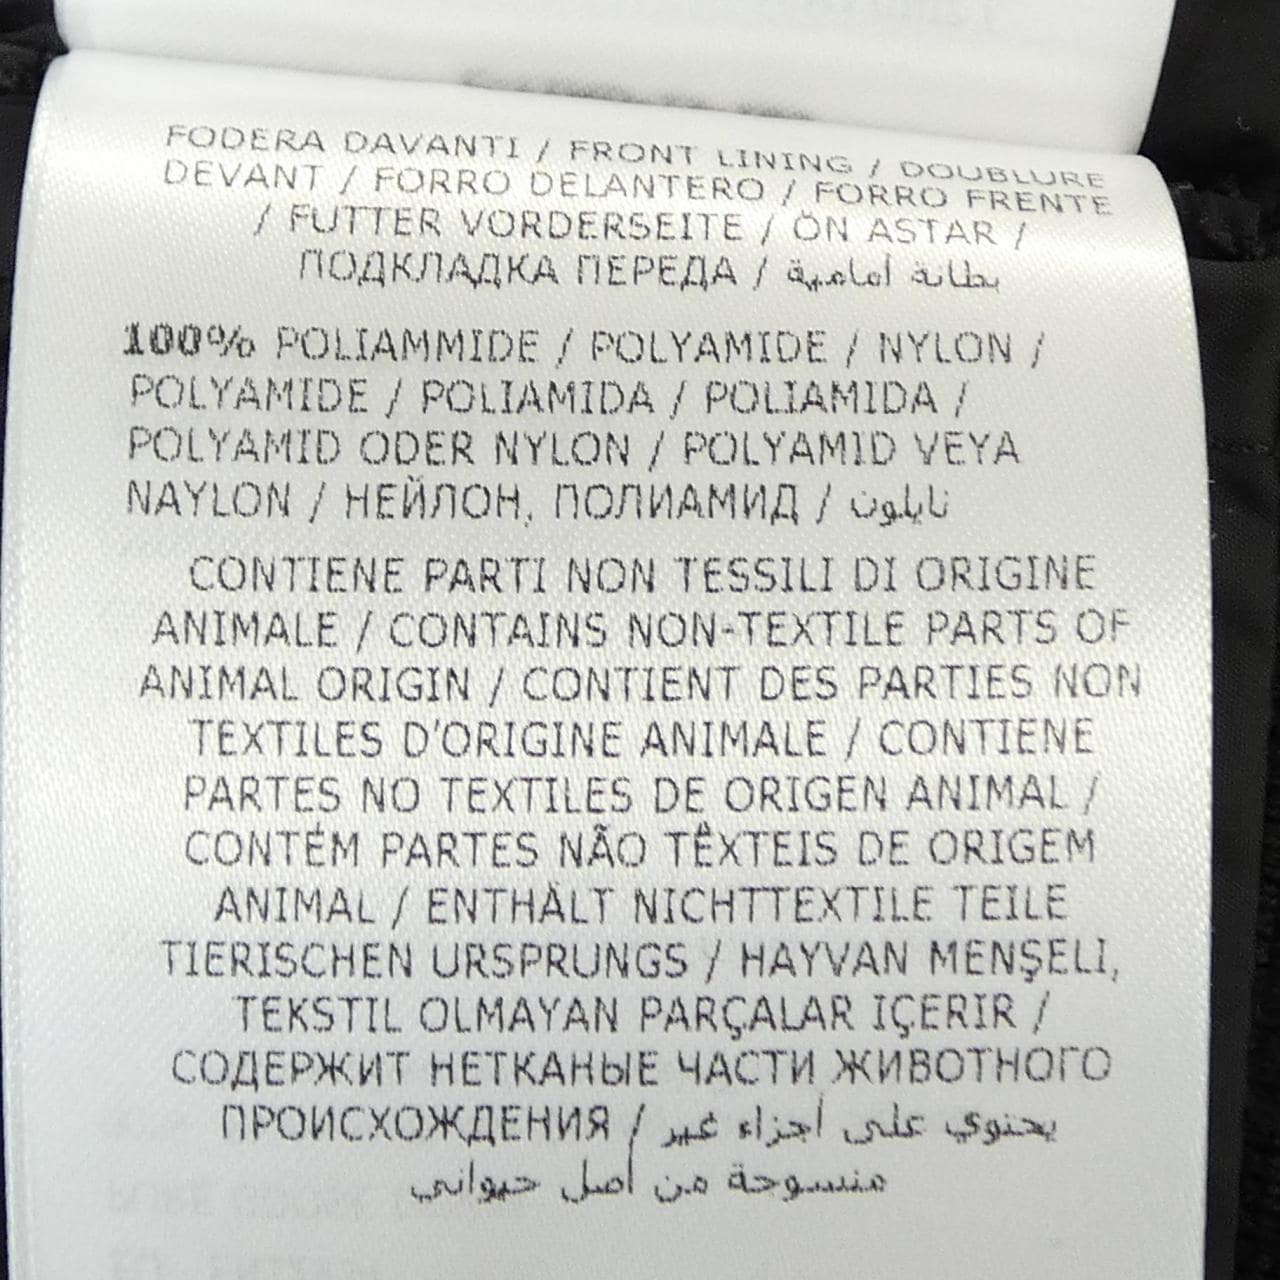 FODERA DAVANTI / FRONT LINING / DOUBLURE
DEVANT / FORRO DELANTERO / FORRO FRENTE
/ FUTTER VORDERSEITE / ÖN ASTAR /
ПОДКЛАДКА ПЕРЕДА / بطانة أمامية
100% POLIAMMIDE / POLYAMIDE / NYLON /
POLYAMIDE / POLIAMIDA / POLIAMIDA /
POLYAMID ODER NYLON / POLYAMID VEYA
NAYLON / НЕЙЛОН, ПОЛИАМИД / نايلون
CONTIENE PARTI NON TESSILI DI ORIGINE
ANIMALE / CONTAINS NON-TEXTILE PARTS OF
ANIMAL ORIGIN / CONTIENT DES PARTIES NON
TEXTILES D'ORIGINE ANIMALE / CONTIENE
PARTES NO TEXTILES DE ORIGEN ANIMAL /
CONTÉM PARTES NÃO TÊXTEIS DE ORIGEM
ANIMAL / ENTHÄLT NICHTTEXTILE TEILE
TIERISCHEN URSPRUNGS / HAYVAN MENŞELI,
TEKSTIL OLMAYAN PARÇALAR IÇERIR /
СОДЕРЖИТ НЕТКАНЫЕ ЧАСТИ ЖИВОТНОГО
ПРОИСХОЖДЕНИЯ / يحتوي على أجزاء غير
منسوجة من أصل حيواني